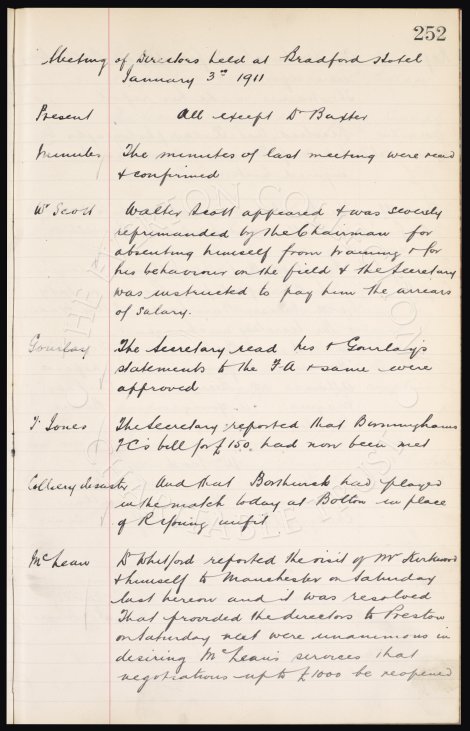 252
Meeting of Directors held at Bradford Hotel
January 3rd 1911
Present All except Dr Baxter
Minutes The minutes of last meeting were read
& confirmed
W. Scott Walter Scott appeared & was severely
reprimanded by the Chairman for
absenting himself from training & for
his behaviour on the field & the Secretary
was instructed to pay him the arrears
of salary.
Gourlay The Secretary read his & Gourlay's
statements to the F.A & same were
approved
T. Jones The Secretary reported that Birmingham
FC's bill for £150 had now been met
Colliery disaster And that Borthwick had played
in the match today at Bolton in place
of R Young unfit
McLean Dr Whitford reported the visit of Mr Kirkwood
& himself to Manchester on Saturday
last hereon and it was resolved
That provided the directors to Preston
on Saturday next were unanimous in
desiring McLean's services that
negotiations up to £1000 be reopened